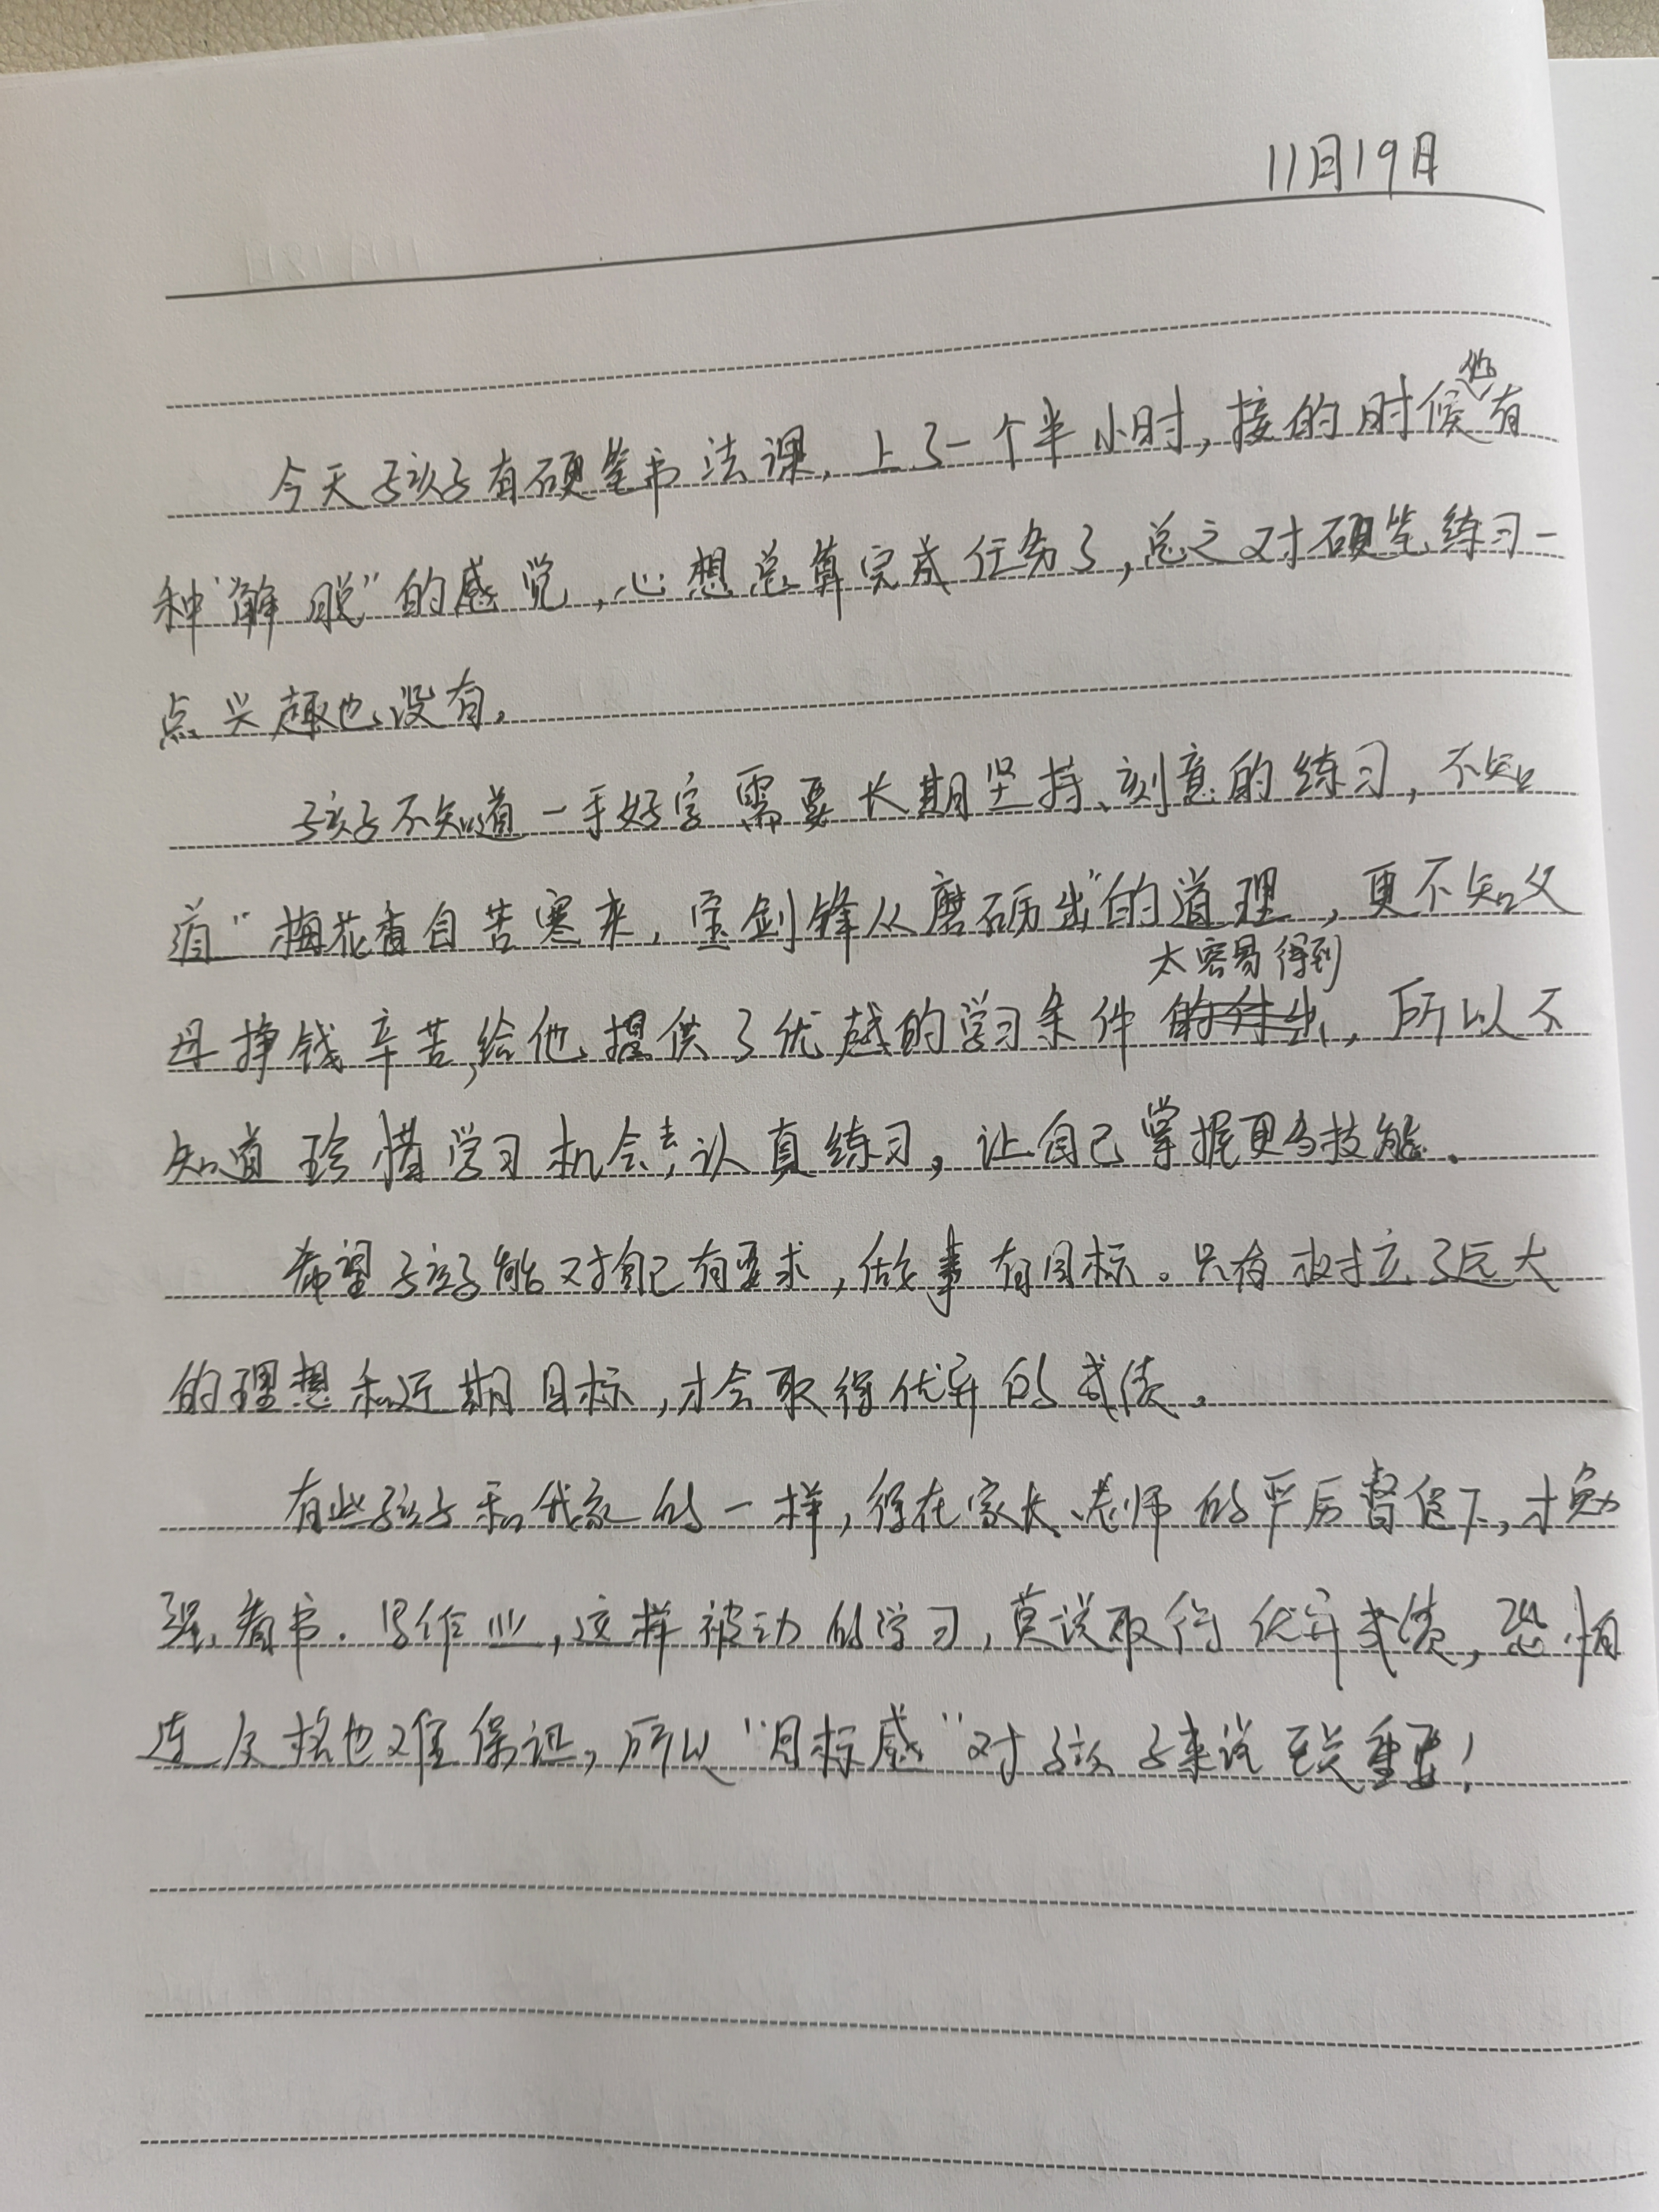 11月19日
今天孩子有硬笔书法课，上了一个半小时，接的时候他有
种“解脱”的感觉，心想总算完成任务了，总之对硬笔练习一
点兴趣也没有。
孩子不知道一手好字需要长期坚持、刻意的练习，不知
道“梅花香自苦寒来，宝剑锋从磨砺出”的道理，更不知父
母挣钱辛苦，给他提供了优越的学习条件太容易得到，所以不
知道珍惜学习机会，去认真练习，让自己掌握更多技能。
希望孩子能对自己有要求，做事有目标。只有树立了远大
的理想和近期目标，才会取得优异的成绩。
有些孩子和我家的一样，得在家长、老师的严厉督促下，才勉
强看书、写作业，这样被动的学习，莫说取得优异成绩，恐怕
连及格也难保证，所以“目标感”对孩子来说至关重要！